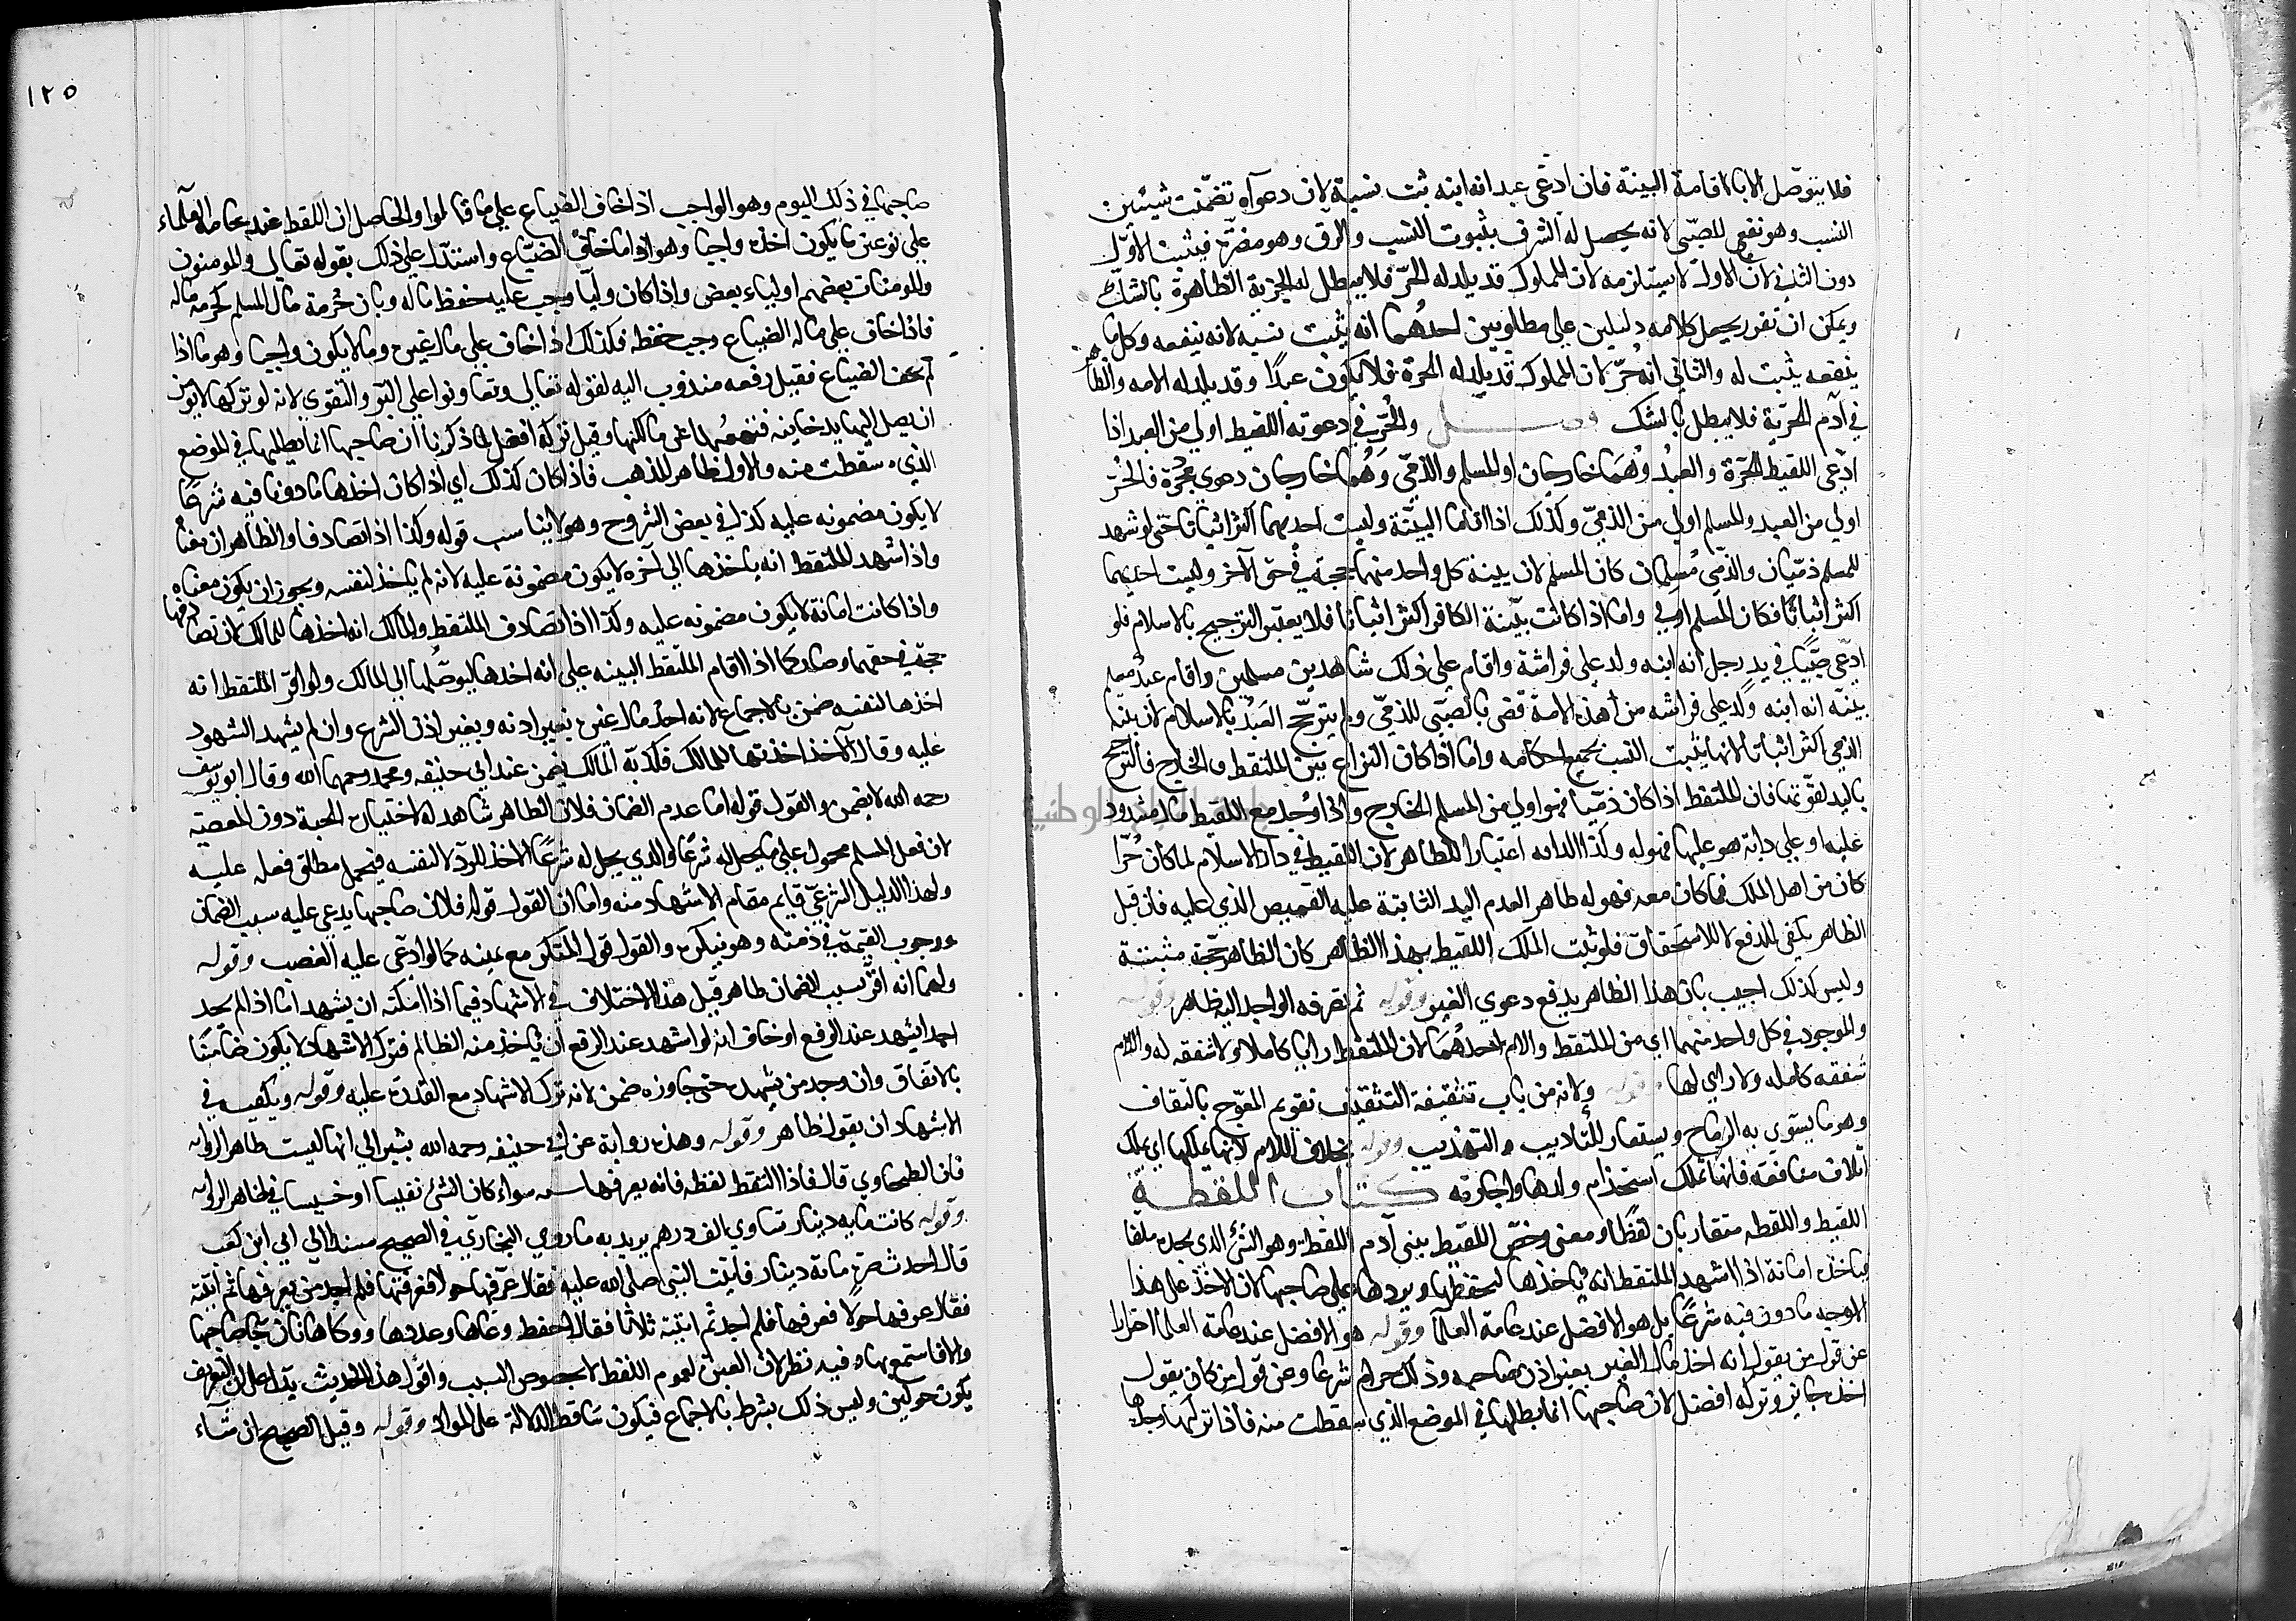 فلا يتوصل الا باقامة البينة فان ادعى عبد انه ابنه ثبت نسبه لان دعواه تضمنت شيئين
النسب وهو نفع للصبي لانه يحصل له الشرف بثبوت النسب والرق وهو مضرة فيثبت الاول
دون الثاني لان الاول لا يستلزمه لان المملوك قد يلد له الحر فلا يبطل له الحرية الظاهرة بالشك
ويمكن ان تقرر يحمل كلامه دليلين على مطلوبين احدهما انه يثبت نسبه لانه ينفعه وكل ما
ينفعه يثبت له والثاني انه حر لان المملوك قد يلد له الحرة فلا يكون عبدا وقد يلد له الامه والظاهر
في آدم الحرية فلا يبطل بالشك فصل والحر في دعوته اللقيط اولى من العبد اذا
ادعى اللقيط الحر والعبد وهما خارجان او المسلم والذمي وهما خارجان دعوى مجردة فالحر
اولى من العبد والمسلم اولى من الذمي وكذلك اذا اقاما البينة وليست احديهما اكثر اثباتا حتى لو شهد
للمسلم ذميان والذمي مسلمان كان المسلم لان بينة كل واحد منهما حجة في حق الآخر وليست احديهما
اكثر اثباتا فكان المسلم اولى واما اذا كانت بينة الكافر اكثر اثباتا فلا يعتبر الترجيح بالاسلام فلو
ادعى صبيا في يد رجل انه ابنه ولد على فراشه واقام على ذلك شاهدين مسلمين واقام عبد مسلم
بينة انه ابنه ولد على فراشه من هذه الامة قضى بالصبي للذمي ولم يترجح العبد بالاسلام لان بينة
الذمي اكثر اثباتا لانها يثبت النسب بجميع احكامه واما اذا كان النزاع بين الملتقط والخارج فالترجيح
باليد لقوتها فان الملتقط اذا كان ذميا فهو اولى من المسلم الخارج واذا وجد مع اللقيط مال مشدود
عليه او على دابة هو عليها فهو له وكذا الدابه اعتبارا للظاهر لان اللقيط في دار الاسلام لما كان حرا
كان من اهل الملك فما كان معه فهو له ظاهر العدم اليد الثابتة عليه القميص الذي عليه فان قيل
الظاهر يكفي للدفع لا للاستحقاق فلو ثبت الملك اللقيط بهذا الظاهر كان الظاهر حجة مثبتة
وليس كذلك اجيب بان هذا الظاهر يدفع دعوى الغير وقوله ثم تصرفه الواجد اليه ظاهر وقوله
والموجود في كل واحد منهما اي من الملتقط والام احدهما لان للملتقط رايا كاملا ولا شفقه له والام
شفقه كامله ولا راي لها وقوله ولانه من باب تثقيفه التثقيف تقويم المعوج بالثقاف
وهو ما يسوى به الرماح ويستعار للتاديب والتهذيب وقوله بخلاف الام لانها يملكها اي تملك
اتلاف منافعه فانها تملك استخدام ولدها واجارته كتاب اللقطة
اللقيط واللقطه متقاربان لفظا ومعنى وخص اللقيط ببني آدم اللقطة وهو الشئ الذي يجده ملقا
فياخذه امانة اذا اشهد الملتقط انه ياخذها ليحفظها ويردها على صاحبها لان الاخذ على هذا
الوجه ماذون فيه شرعا بل هو الافضل عند عامة العلما وقوله هو الافضل عند عامة العلما احترازا
عن قول من يقول انه اخذ مال الغير بغير اذن صاحبه وذلك حرام شرعا وعن قول من كان يقول
اخذ جايز وتركه افضل لان صاحبها انما يطلبها في الموضع الذي سقطت منه فاذا تركها وجدها
١٢٥
صاحبها في ذلك اليوم وهو الواجب اذا خاف الضياع على ما قالوا والحاصل ان اللقط عند عامة العلماء
على نوعين ما يكون اخذه واجبا وهو اذا ما خاف الضياع واستدل على ذلك بقوله تعالى والمومنون
والمومنات بعضهم اولياء بعض واذا كان وليا وجب عليه حفظ ماله وبان حرمة مال المسلم كحرمة ماله
فاذا خاف على ماله الضياع وجب حفظه فكذلك اذا خاف على مال غيره وما لا يكون واجبا وهو ما اذا
لم يخف الضياع فقيل رفعه مندوب اليه لقوله تعالى وتعاونوا على البر والتقوى لانه لو تركها لا يؤمن
ان يصل اليها يد خاينه فتمنعها عن مالكها وقيل تركه افضل لما ذكرنا ان صاحبها انما يطلبها في الموضع
الذي سقطت منه والاول ظاهر المذهب فاذا كان كذلك اي اذا كان اخذها ماذونا فيه شرعا
لا يكون مضمونه عليه كذلك في بعض الشروح وهو لا يناسب قوله وكذا اذا تصادقا والظاهر ان معناه
واذا اشهد الملتقط انه ياخذها الى آخره لا يكون مضمونة عليه لانه لم ياخذ لنفسه ويجوز ان يكون معناه
واذا كانت امانة لا يكون مضمونه عليه وكذا اذا تصادق الملتقط والمالك انه اخذها للمالك لان تصادقهما
حجة في حقهما وصار كما اذا اقام الملتقط البينه على انه اخذها ليوصلها الى المالك ولو اقر الملتقط انه
اخذها لنفسه ضمن بالاجماع لانه اخذ مال غيره بغير اذنه وبغير اذن الشرع وان لم يشهد الشهود
عليه وقال الآخذ اخذتها للمالك فكذبه المالك يضمن عند ابي حنيفه ومحمد رحمهما الله وقال ابو يوسف
رحمه الله لا يضمن والقول قوله اما عدم الضمان فلان الظاهر شاهد له لاختياره الحسبة دون المعصية
لان فعل المسلم محمول على ما يحل له شرعا والذي يحل له شرعا الاخذ للرد لا لنفسه فيحمل مطلق فعله عليه
ولهذا الدليل الشرعي قايم مقام الاشهاد منه واما ان القول قوله فلان صاحبها يدعي عليه سبب الضمان
ووجوب القيمة في ذمته وهو ينكره والقول قول المنكر مع يمينه كما لو ادعى عليه الغصب وقوله
ولهما انه اقر بسبب الضمان ظاهر قيل هذا الاختلاف في الاشهاد فيما اذا امكنه ان يشهد اما اذا لم يجد
احدا يشهد عند الرفع او خاف انه لو اشهد عند الرفع ان ياخذ منه الظالم فترك الاشهاد لا يكون ضامنا
بالاتفاق وان وجد من يشهد حتى جاوزه ضمن لانه ترك الاشهاد مع القدرة عليه وقوله ويكفيه في
الاشهاد ان يقول ظاهر وقوله وهذه رواية عن ابي حنيفه رحمه الله يشير الى انها ليست ظاهر الروايه
فان الطحاوي قال فاذا التقط لقطه فانه يعرفها سنه سواء كان الشئ نفيسا او خسيسا في ظاهر الروايه
وقوله كانت مايه دينار تساوي الف درهم يريد به ما روى البخاري في الصحيح مسندا الى ابي ابن كعب
قال اخذت صرة مائة دينار فاتيت النبي صلى الله عليه فقال عرفها حولا فعرفتها فلم اجد من يعرفها ثم اتيته
فقال عرفها حولا فعرفها فلم اجد ثم اتيته ثلاثا فقال احفظ وعاها وعددها ووكاها فان جا صاحبها
والا فاستمتع بها وفيه نظر لان العبرة لعموم اللفظ لا بخصوص السبب واقول هذا الحديث يدل على ان التعريف
يكون حولين وليس ذلك بشرط بالاجماع فيكون ساقط الدلالة على المراد وقوله وقيل الصحيح ان شاء